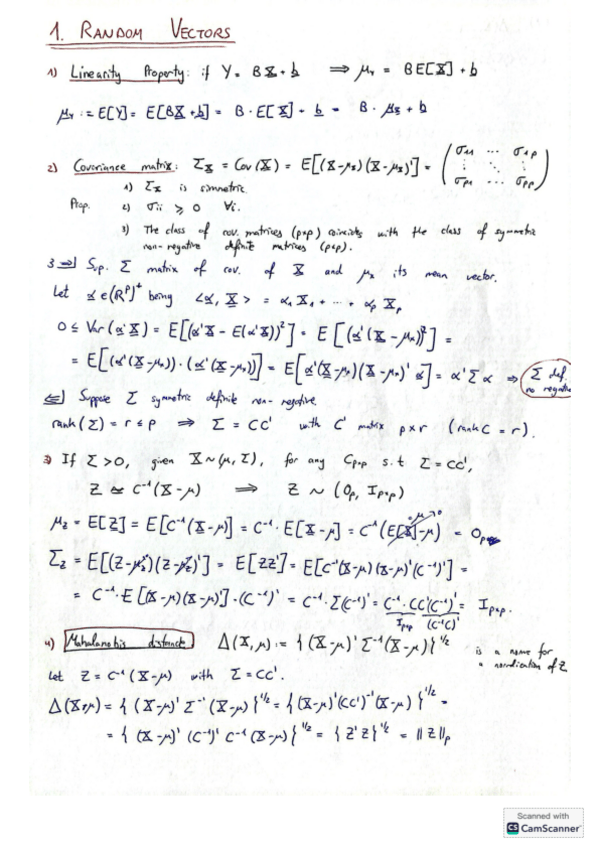 1. RANDOM VECTORS
1) Linearity Property: if Y = BX + b ⟹ μY = BE[X] + b
μY := E[Y] = E[BX + b] = B·E[X] + b = B·μX + b
2) Covariance matrix: ΣX = Cov(X) = E[(X-μX)(X-μX)'] = (σ11 ⋯ σ1p ⋮ ⋱ ⋮ σp1 ⋯ σpp)
Prop. 1) ΣX is simmetric.
2) σii ⩾ 0 ∀i.
3) The class of cov. matrices (p×p) coincides with the class of symmetric
non-negative definite matrices (p×p).
3 ⟹] Sup. Σ matrix of cov. of X and μX its mean vector.
Let α ∈ (ℝᵖ)⁺ being <α, X> = α1X1 + ⋯ + αpXp
0 ≤ Var(α'X) = E[(α'X - E(α'X))²] = E[(α'(X-μX))²] =
= E[(α'(X-μX))·(α'(X-μX))] = E[α'(X-μX)(X-μX)'α] = α'Σα ⟹ Σ def. no negative
⟸] Suppose Σ symmetric definite non-negative.
rank(Σ) = r ≤ p ⟹ Σ = CC' with C' matrix p×r (rank C = r).
3) If Σ>0, given X~(μ,Σ), for any Cp×p s.t Σ = CC',
Z ≃ C⁻¹(X-μ) ⟹ Z ~ (Op, Ip×p)
μZ = E[Z] = E[C⁻¹(X-μ)] = C⁻¹·E[X-μ] = C⁻¹(E[X]-μ) = Op
ΣZ = E[(Z-μZ)(Z-μZ)'] = E[ZZ'] = E[C⁻¹(X-μ)(X-μ)'(C⁻¹)'] =
= C⁻¹·E[(X-μ)(X-μ)']·(C⁻¹)' = C⁻¹·Σ(C⁻¹)' = C⁻¹·CC'(C⁻¹)' = Ip×p.
Ip×p (C⁻¹C)'
4) Mahalanobis distance Δ(X,μ) := {(X-μ)'Σ⁻¹(X-μ)}^1/2 is a name for
Let Z = C⁻¹(X-μ) with Σ = CC'.
Δ(X,μ) = {(X-μ)'Σ⁻¹(X-μ)}^1/2 = {(X-μ)'(CC')⁻¹(X-μ)}^1/2 =
= {(X-μ)'(C⁻¹)'C⁻¹(X-μ)}^1/2 = {Z'Z}^1/2 = ||Z||p
Scanned with
CS CamScanner